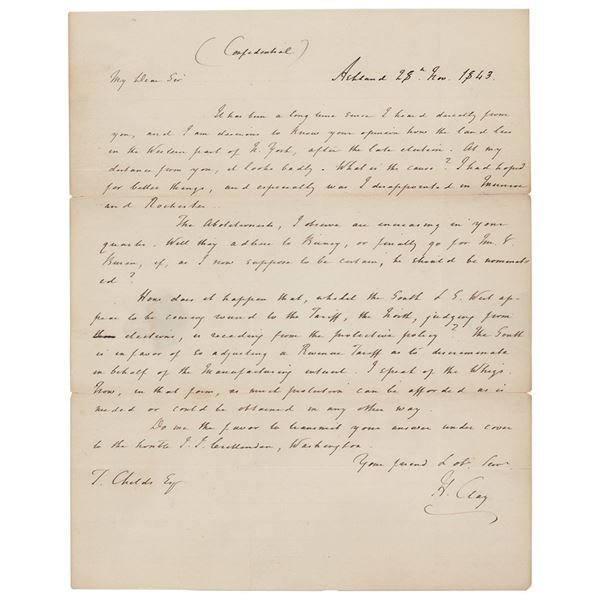 (Confidential)
My Dear Sir
Ashland 28h Nov. 1843.
It has been a long time since I heard directly from
you, and I am desirous to know your opinion how the land lies
in the Western part of N. York, after the late election. At my
distance from you, it looks badly. What is the cause? I had hoped
for better things, and especially was I disappointed in Munroe
and Rochester.
The Abolitionists, I observe are increasing in your
quarter. Will they adhere to Birney, or finally go for Mr. V.
Buren, if, as I now suppose to be certain, he should be nominat
ed?
How does it happen that, whilst the South & S. West ap-
pear to be coming round to the Tariff, the North, judging from
elections, is receding from the protective policy? The South
is in favor of so adjusting a Revenue Tariff as to discriminate
in behalf of the Manufacturing interest. I speak of the Whigs.
Now, in that form, as much protection can be afforded as is
needed or could be obtained in any other way.
Do me the favor to transmit your answer under cover
to the honble J. J. Crittenden, Washington.
Your friend & ob. Serv.
H. Clay
T. Childs Esq